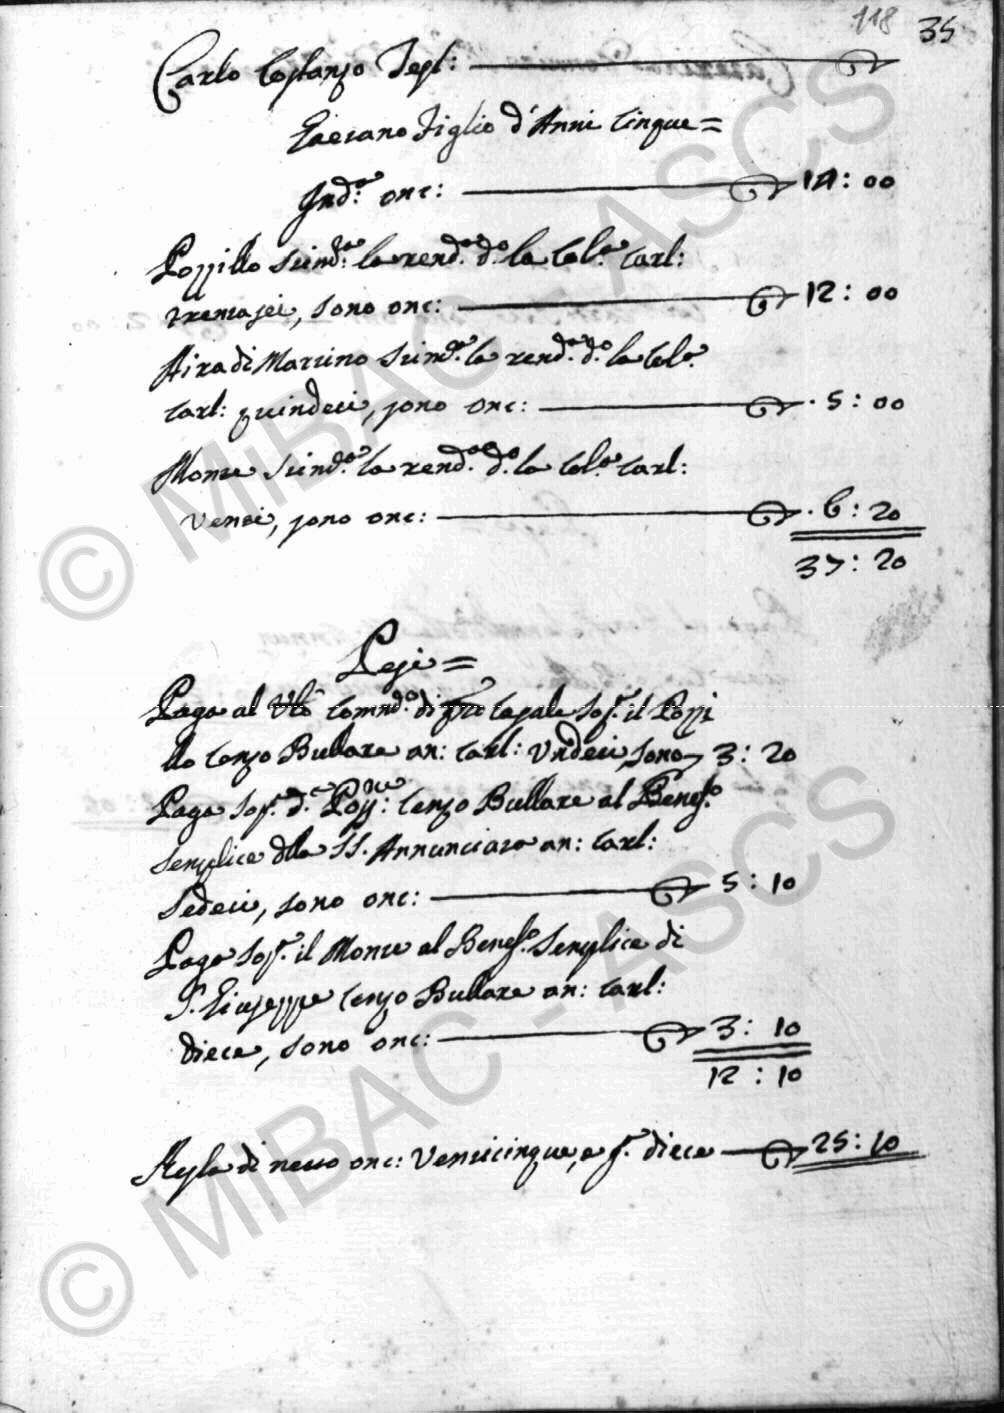 118 35
Carlo Costanzo Test:
Gaetano figlio d'Anni Cinque=
Ind:ª onc: 14:00
Pozzillo Stim:ª la rend:ª d:º la Col:ª Carl:
trentasei, sono onc: 12:00
Aira di Martino Stim:ª la rend:ª d:º la Col:ª
Carl: quindeci, sono onc: .5:00
Monte Stim:ª la rend:ª d:º la Col:ª Carl:
Venti, sono onc: .6:20
37:20
Pesi=
Paga al Comnd:º di Casale Sop:ª il Pozzi
llo Cenzo Bullare an: Carl: Undeci, sono 3:20
Paga Sop:ª d:º Cenzo Bullare al Benef:º
Semplice dlla SS. Annunciata an: Carl:
Sedeci, sono onc: 5:10
Paga Sop:ª il Monte al Benef:º Semplice di
S. Giuseppe Cenzo Bullare an: Carl:
diece, sono onc: 3:10
12:10
Resta di netto onc: Venticinque, e diece 25:10
© MIBAC - ASCS
© MIBAC - ASCS